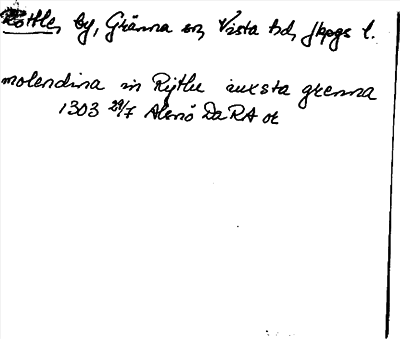 Röttle, by, Gränna sn, Vista hd, Jkpgs l.
molendina in Rytlu iuxsta grenna
1303 29/7 Alsnö DaRA or